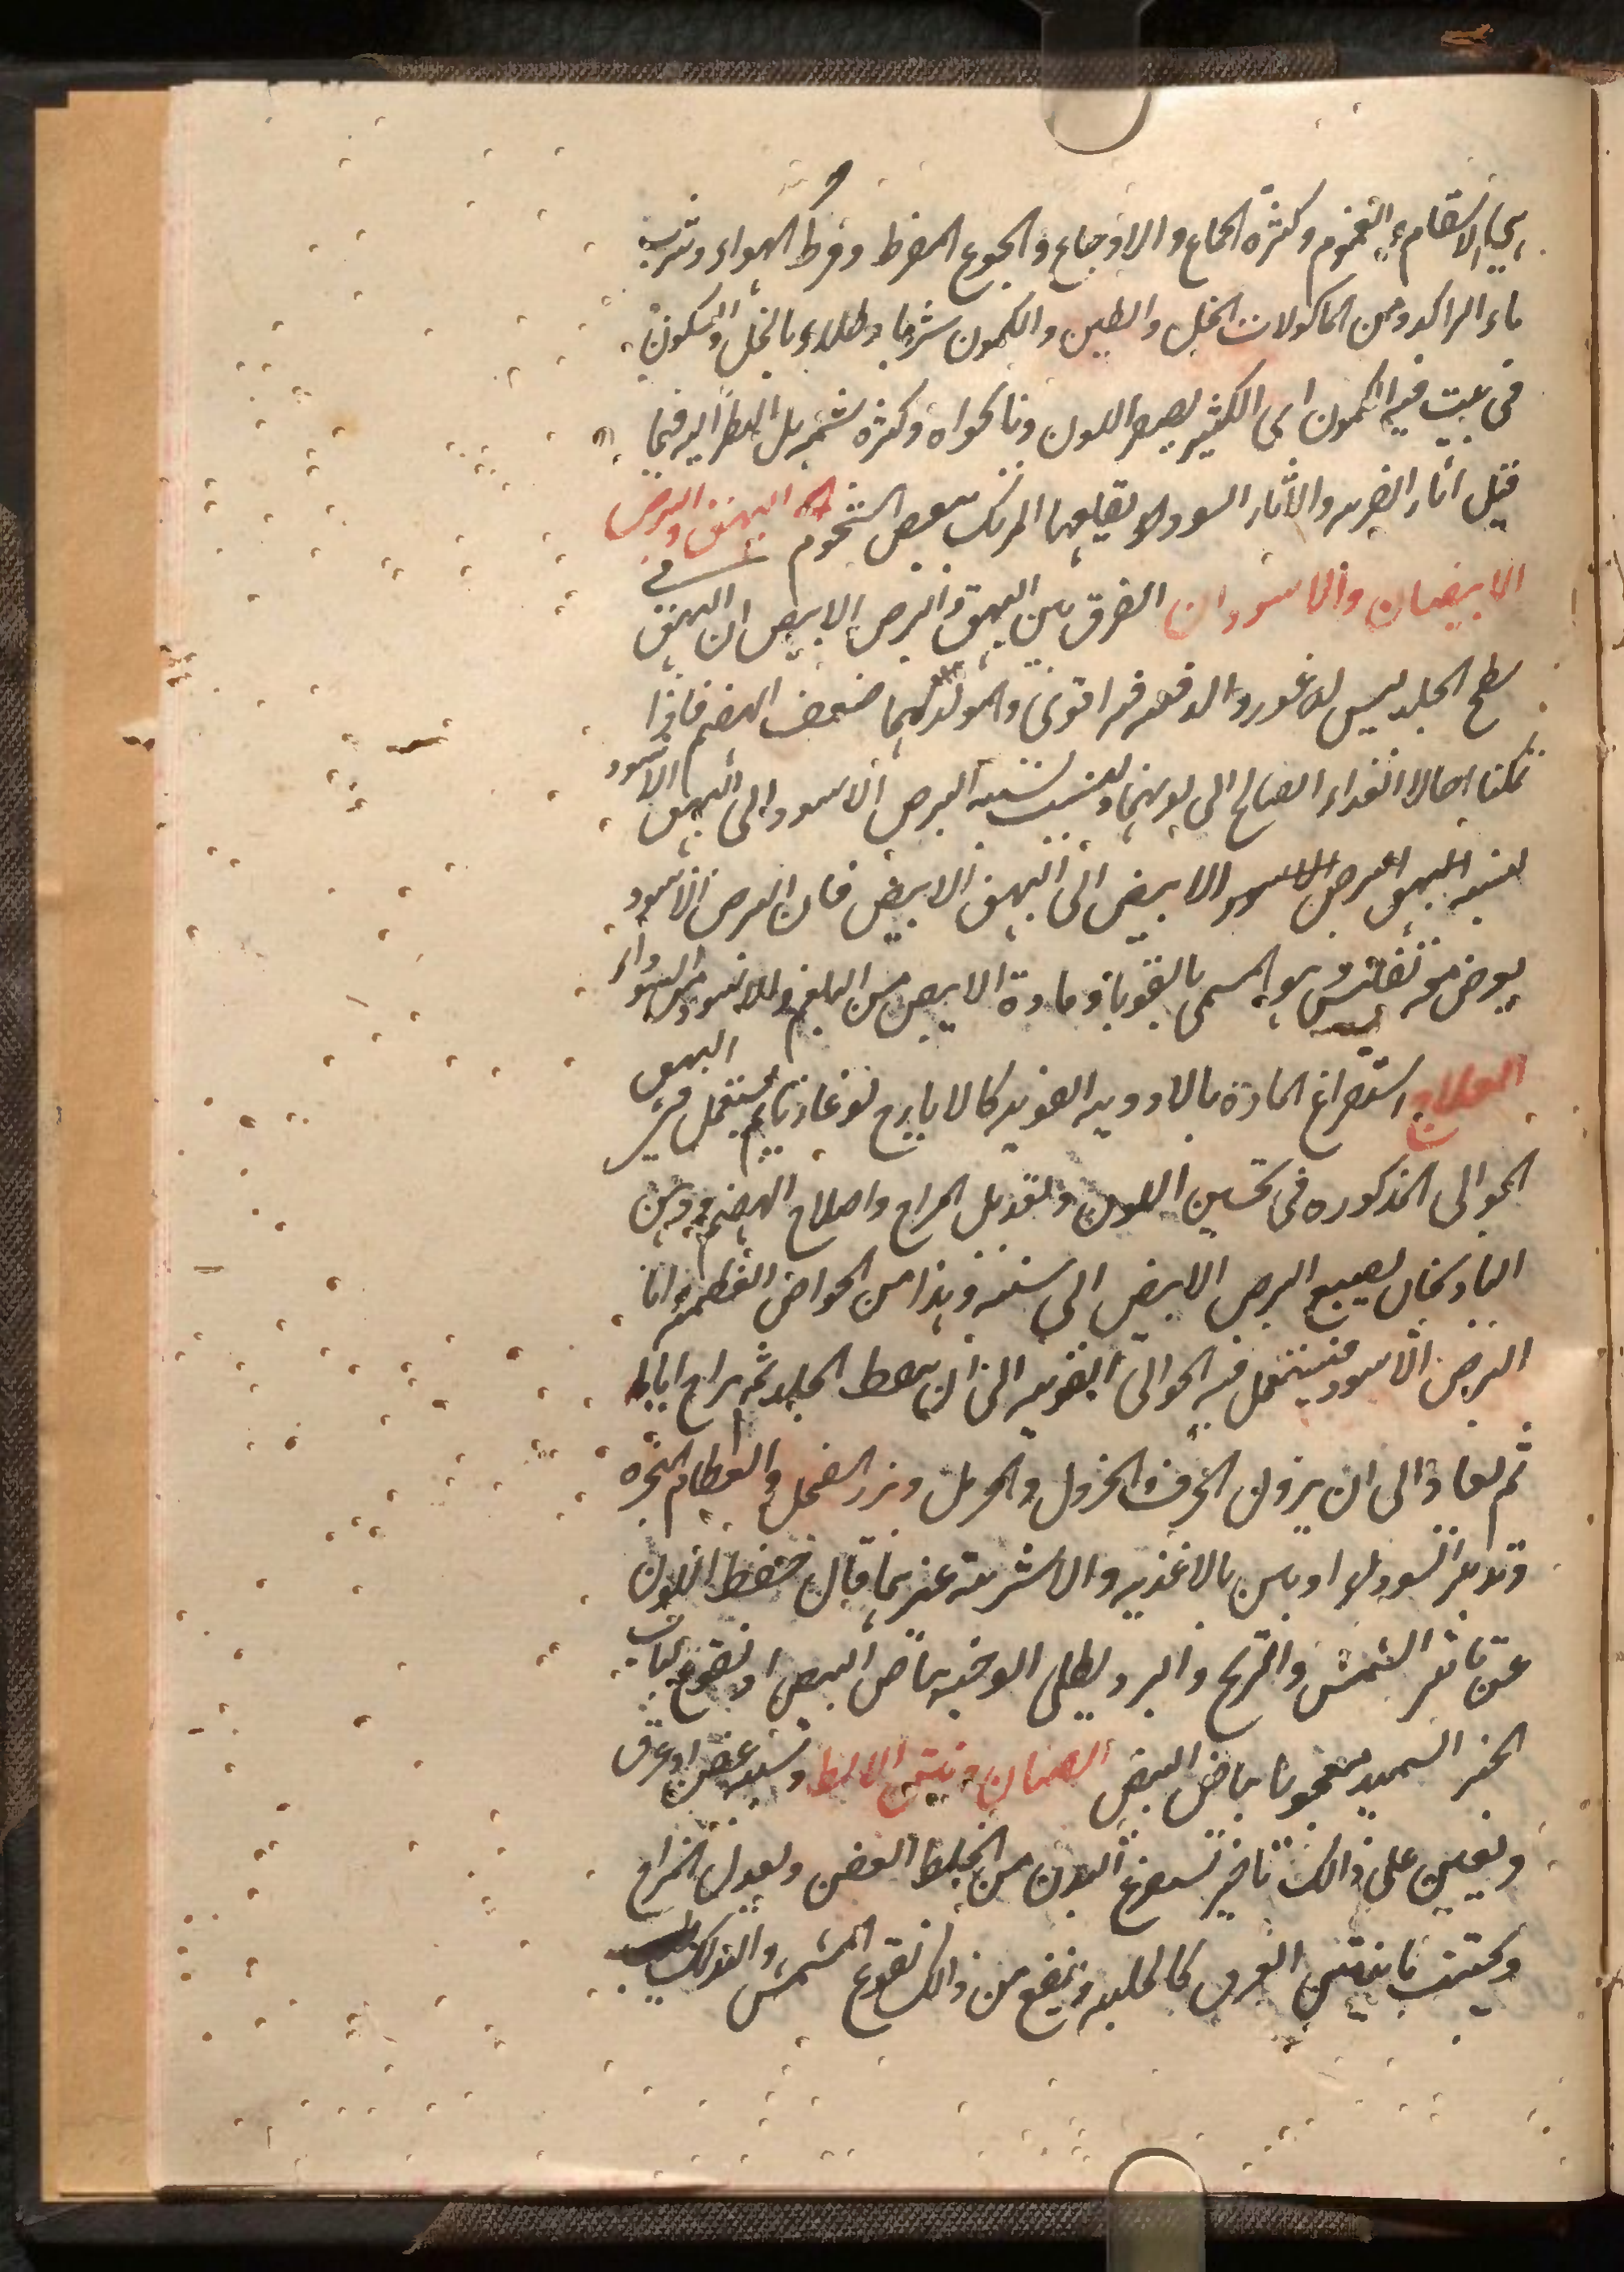 هي الاسقام والغموم وكثرة الجماع والاوجاع والجوع المفرط وفرط الهواء وشرب
ماء الراكد ومن الماكولات الخل والطين والكمون شربا وطلاء بالخل والسكون
فى بيت فيه الكمون اى الكثير يصفر اللون ونانخواه وكثرة شمه بل النظر اليه فيما
قيل اثار الضربه والاثار السود يقلعها المرتك ببعض الشحوم البهق والبرص
الابيضان والاسودان الفرق بين البهق والبرص الابيض ان البهق فى
سطح الجلد ليس له غور والدافعه فيه اقوى والمولد لهما ضعف الهضم فاذا
تمكنا احالا الغذاء الصالح الى نوعهما ونسبت نسبة البرص الاسود الى البهق الاسود
نسبة البرص الابيض الى البهق الابيض فان البرص الاسود
يعرض معه تفلس وهو المسمى بالقوبا ومادة الابيض من البلغم والاسود من السوداء
العلاج استفراغ المادة بالادويه القويه كالايارج لوغاذيا ثم يستعمل فى البهق
الجوالى المذكوره فى تحسين اللون وتعديل المزاج واصلاح الهضم ودهن
البادنجان يصبغ البرص الابيض الى سنته وهذا من الخواص العظيمه واما
البرص الاسود فيستعمل فيه الجوالى القويه الى ان يسقط الجلد ثم يراح اياما
ثم يعاد الى ان يزول الحرف الخردل والحرمل وبزر الفجل والعظام النخره
وتدبير السوداء اوباس بالاغذيه والاشربة غيرها قال حفظ اللون
عن تاثير الشمس والريح والبرد يطلى الوجه ببياض البيض او نقوع لباب
الخبز السميد معجونا ببياض البيض الصنان ونتن الابط وسببه عفن او عرق
ويعين على ذالك تاخير تستفرغ البدن من الخلط العفن ويعدل المزاج
ويجتنب ما ينتن العرق كالحلبه وينفع من ذالك نقوع المشمش والتدلك